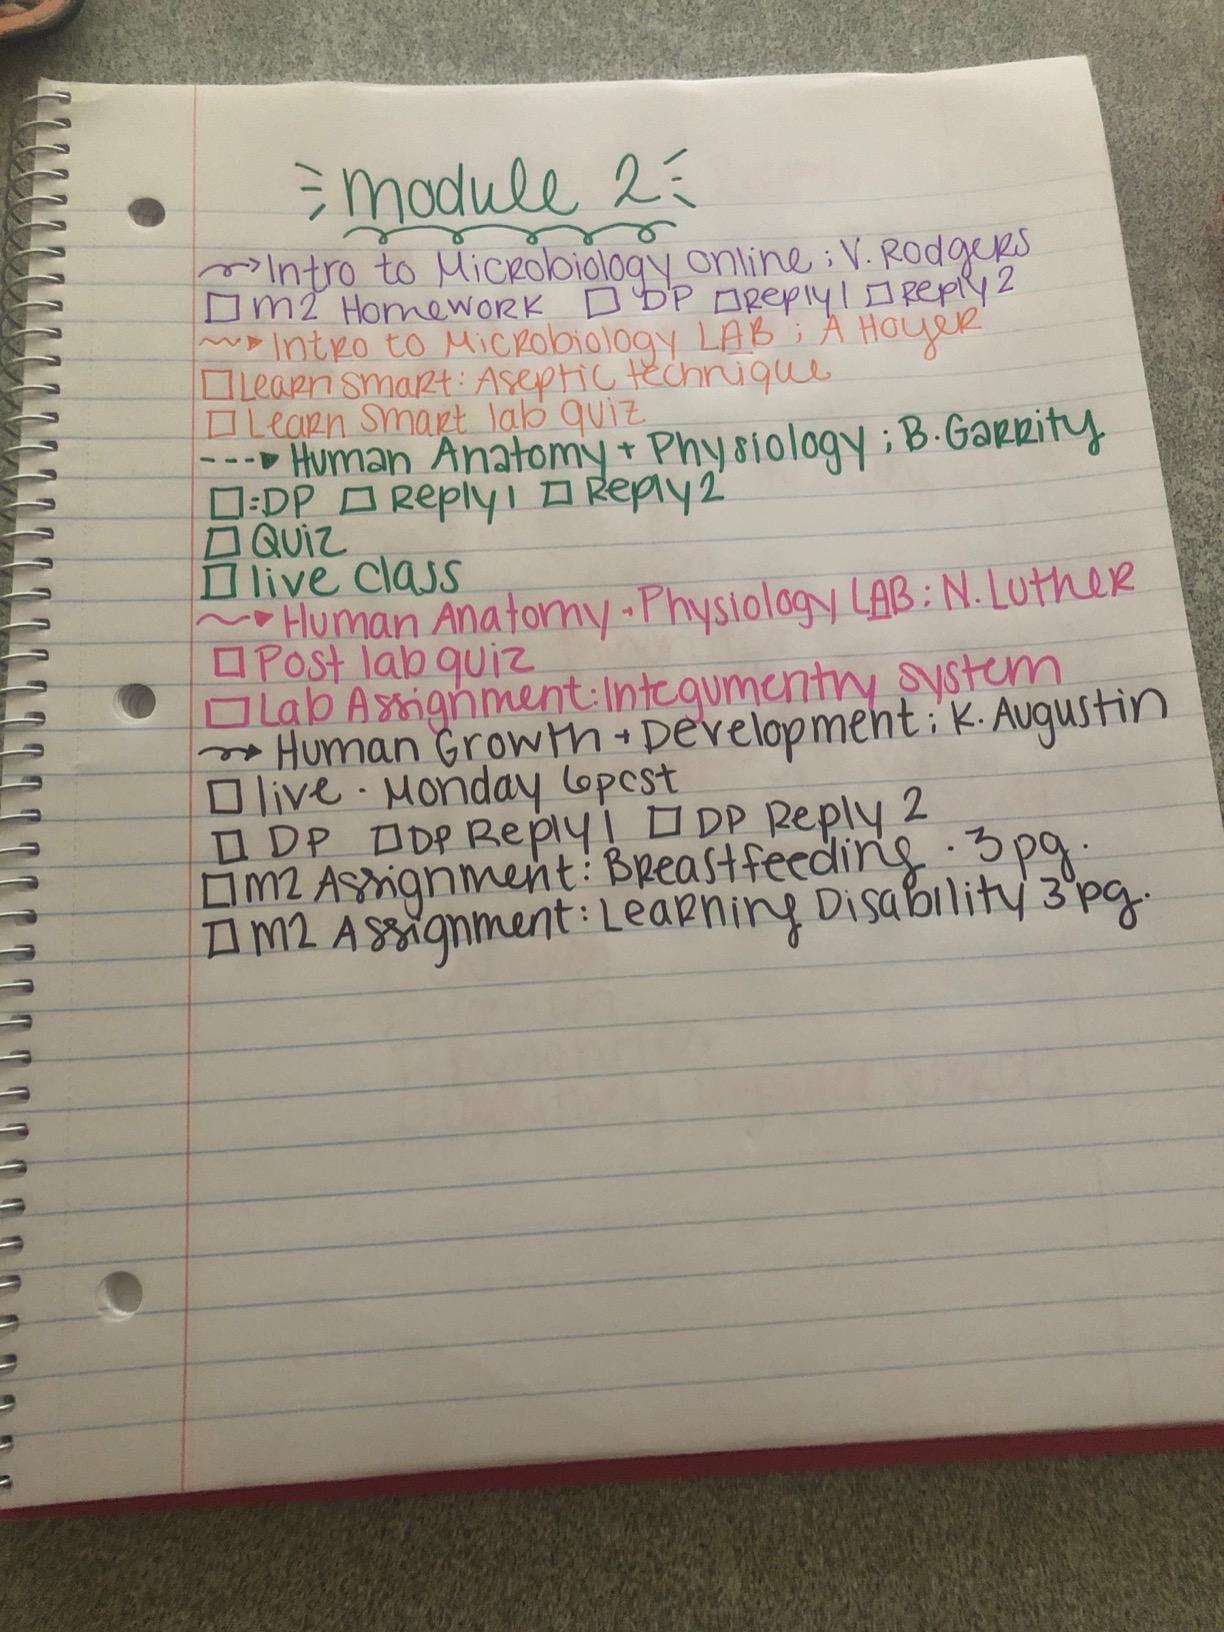 Module 2
Intro to Microbiology online; V. Rodgers
□ M2 Homework □ DP □ Reply 1 □ Reply 2
Intro to Microbiology LAB; A Hoyer
□ Learn smart: Aseptic technique
□ Learn smart lab quiz
---▸ Human Anatomy + Physiology; B. Garrity
□:DP □ Reply 1 □ Reply 2
□ Quiz
□ live class
Human Anatomy + Physiology LAB: N. Luther
□ Post lab quiz
□ Lab Assignment: Integumentry system
Human Growth + Development; K. Augustin
□ live · Monday 6pcst
□ DP □ DP Reply 1 □ DP Reply 2
□ M2 Assignment: Breastfeeding · 3 pg.
□ M2 Assignment: Learning Disability 3 pg.